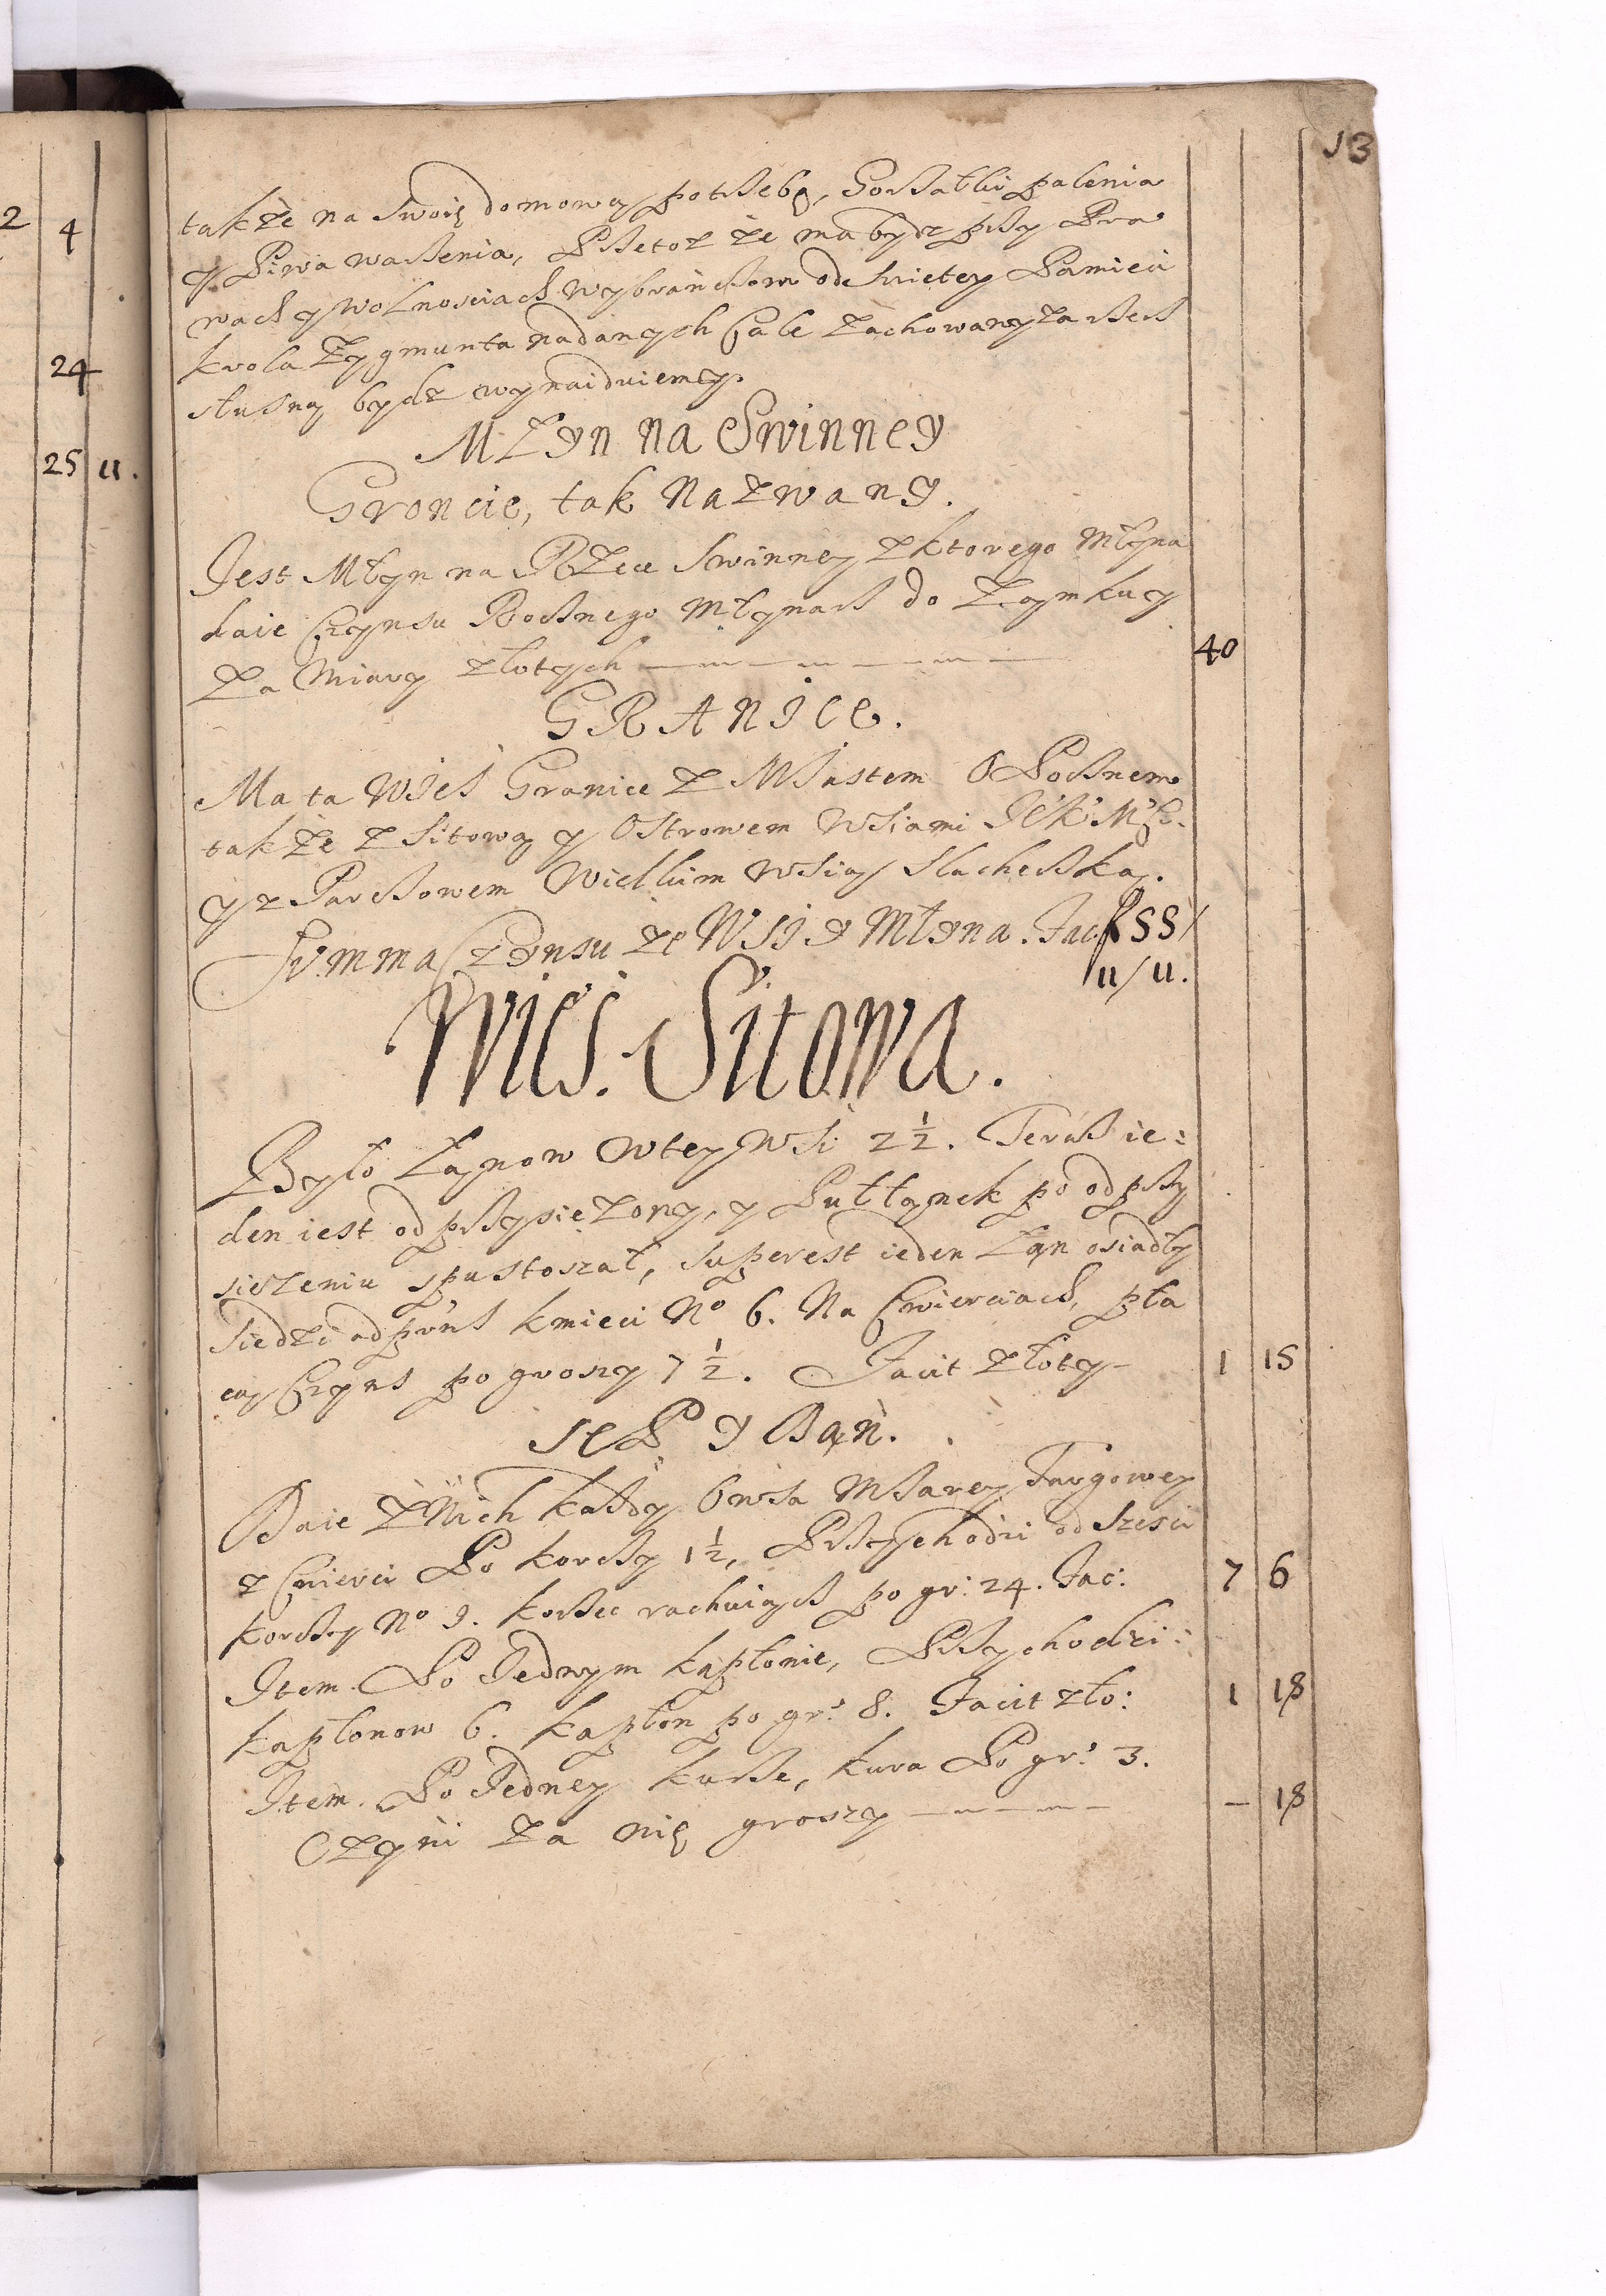 13
2
4
24
25 11.
także na Swoię domową potrzebę, Gorzałki palenia
y Piwa warzenia, Przetoz że ma bydz przy Pra
wach y wolnosciach Wybrańckom od Swietey Pamieci
Krola Zygmunta nadanych Cale zachowany za rzecz
słuszną bydz wynaiduiemy.
Młyn na Swinney
Groncie, tak nazwany.
Jest Młyn na Rzece Swinney z ktorego Młyna
daie Czynsu Rocznego Młynarz do Zamku y
Za Miary złotych
40
GRANICE.
Ma ta Wieś Granice z Miastem Opocznem
także z Sitową y Ostrowem Wsiami JeKMci.
y z Parczowem Wielkim Wsią slachecką.
Summa Czynsu ze Wsi y Młyna. Fac. f 551
11/11.
Wieś. Sitowa.
Było Łanow w tey Wsi 2 1/2. Teraz ie:
den iest odprzysiężony, y Pułłanek po odprzy
siezeniu spustoszał, superest ieden Łan osiadły
Siedzi ad puns Kmieci No 6. Na Cwierciach, pła
cą Czyns po groszy 7 1/2. Facit złoty
1 15
SEP Y DAŃ.
Daie z Nich każdy Owsa Miarey Targowey
z Cwierci Po korcy 1 1/2, Przychodzi od Szesci
korcy No 9. korzec rachuiąc po gr: 24. Fac:
7 6
Item. Po Jednym kapłonie, Przychodzi:
kapłonow 6. kapłon po gr: 8. Facit zło:
1 18
Item. Po Jedney kurze, kura Po gr: 3.
Czyni za nię groszy
– 18